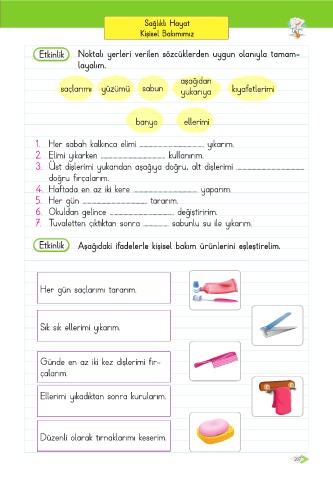 Sağlıklı Hayat
Kişisel Bakımımız
Etkinlik Noktalı yerleri verilen sözcüklerden uygun olanıyla tamam-
layalım.
saçlarımı yüzümü sabun aşağıdan yukarıya kıyafetlerimi
banyo ellerimi
1. Her sabah kalkınca elimi ........................ yıkarım.
2. Elimi yıkarken ........................ kullanırım.
3. Üst dişlerimi yukarıdan aşağıya doğru, alt dişlerimi ........................
doğru fırçalarım.
4. Haftada en az iki kere ........................ yaparım.
5. Her gün ........................ tararım.
6. Okuldan gelince ........................ değiştiririm.
7. Tuvaletten çıktıktan sonra .......... sabunlu su ile yıkarım.
Etkinlik Aşağıdaki ifadelerle kişisel bakım ürünlerini eşleştirelim.
Her gün saçlarımı tararım.
Sık sık ellerimi yıkarım.
Günde en az iki kez dişlerimi fır-
çalarım.
Ellerimi yıkadıktan sonra kurularım.
Düzenli olarak tırnaklarımı keserim.